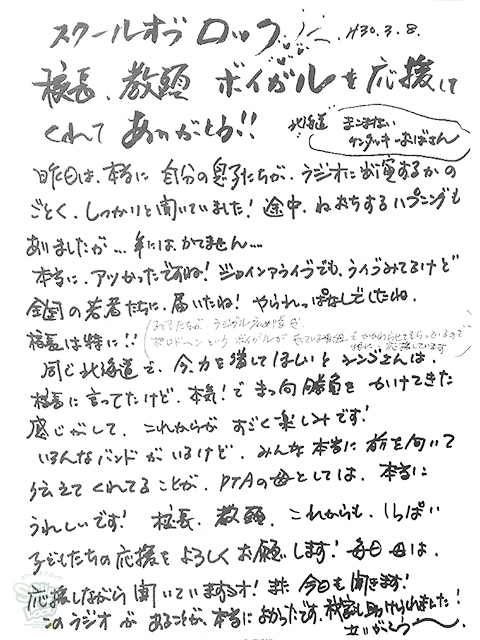 スクールオブロック H30.3.8.
校長、教頭 ボイガルを応援して
くれて ありがとう!!
北海道 まこまない
ケンタッキーおばさん
昨日は、本当に 自分の息子たちが、ラジオに出演するかの
ごとく、しっかりと聞いていました! 途中、ねおちするハプニングも
ありましたが… 年にはかてません…
本当に、アツかったですね! ジョインアライブでも、ライブみてるけど
全国の若者たちに、届いたね! やられっぱなしでしたね。
校長は特に!!
同じ北海道で、今、力を増してほしいと シンゴさんは、
校長に言ってたけど、本気!で まっ向勝負を かけてきた
感じがして、これからが すごく楽しみです!
いろんなバンドが いるけど、みんな本当に 前を向いて
伝えて くれてることが、PTAの母としては、本当に
うれしいです! 校長、教頭、これからも、いっぱい
子どもたちの応援を よろしく お願いします! 毎日 母は、
応援しながら 聞いていますよ! また 今日も 聞きます!
このラジオが あることが、本当によかったです。 助けられました!
ありがとう〜